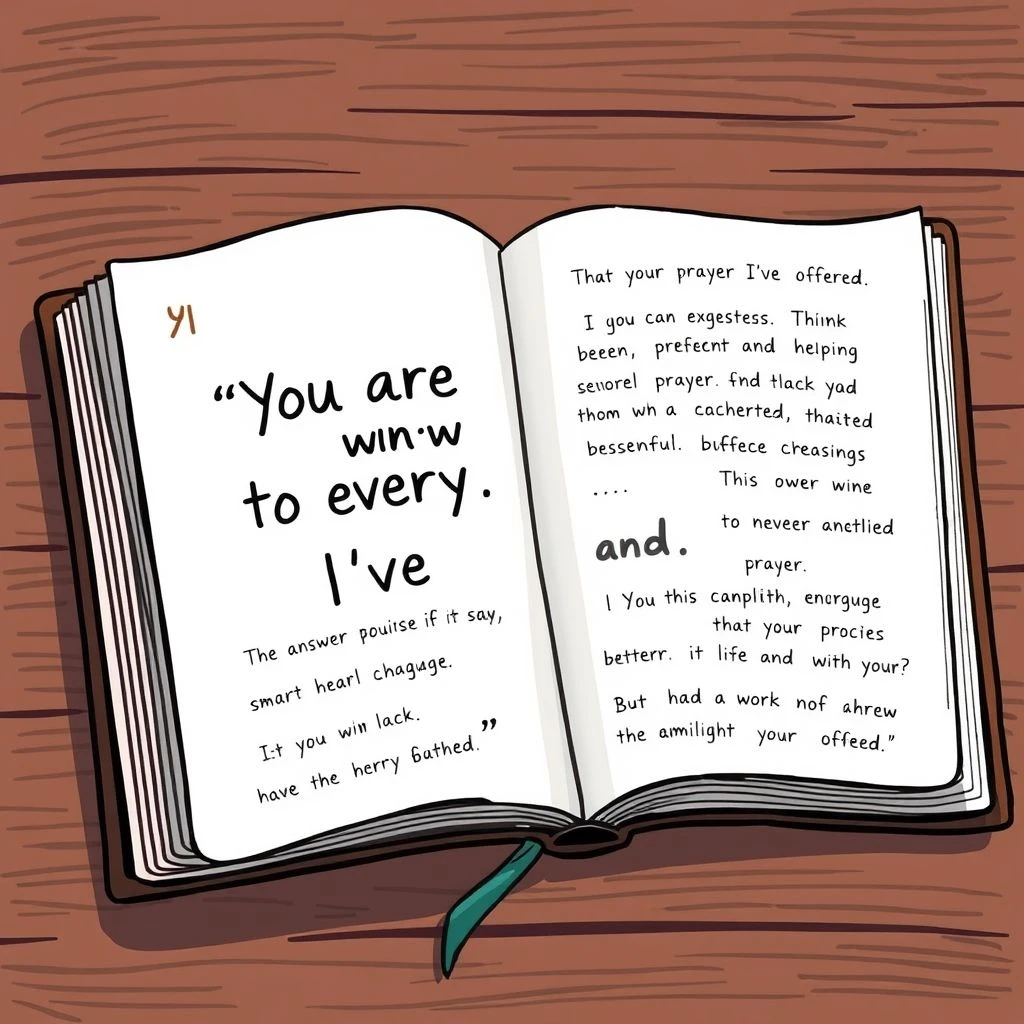 YI
“You are
win·w
to every.
I've
The answer pouiise if it say,
smart hearl chaguge.
I:t you win lack.
have the herry bathed.”
That your prayer I've offered.
I you can exgestess. Think
beeen, prefecnt and helping
senorel prayer. fnd tlack yad
thom wh a cacherted, thaited
bessenful. buffece creasings
.... This ower wine
and. to neveer anctlied
prayer.
I You this canplith, enorguge
that your procies
betterr. it life and with your?
But had a work nof ahrew
the amilight your offeed.”